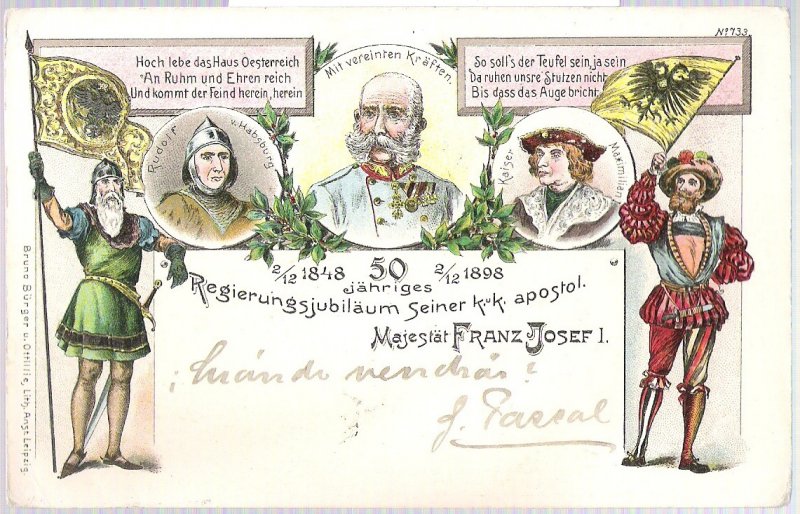 Nº 733
Hoch lebe das Haus Oesterreich
An Ruhm und Ehren reich
Und kommt der Feind herein, herein
Mit vereinten Kräften.
So soll's der Teufel sein, ja sein
Da ruhen unsre Stutzen nicht
Bis dass das Auge bricht.
Rudolf v. Habsburg
Kaiser Maximilian I
2/12 1848 50 2/12 1898
jähriges
Regierungsjubiläum Seiner k.u.k. apostol.
Majestät FRANZ JOSEF I.
¿Cuándo vendrás?
J. Pascal
Bruno Bürger u. Ottillie, Lith. Anst. Leipzig.